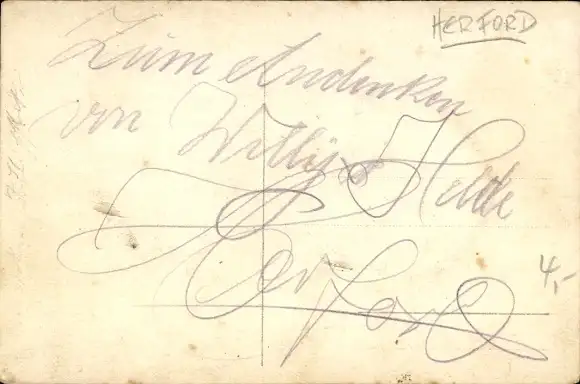 HERFORD
Zum Andenken
von Willy Helde
Herford
4,-